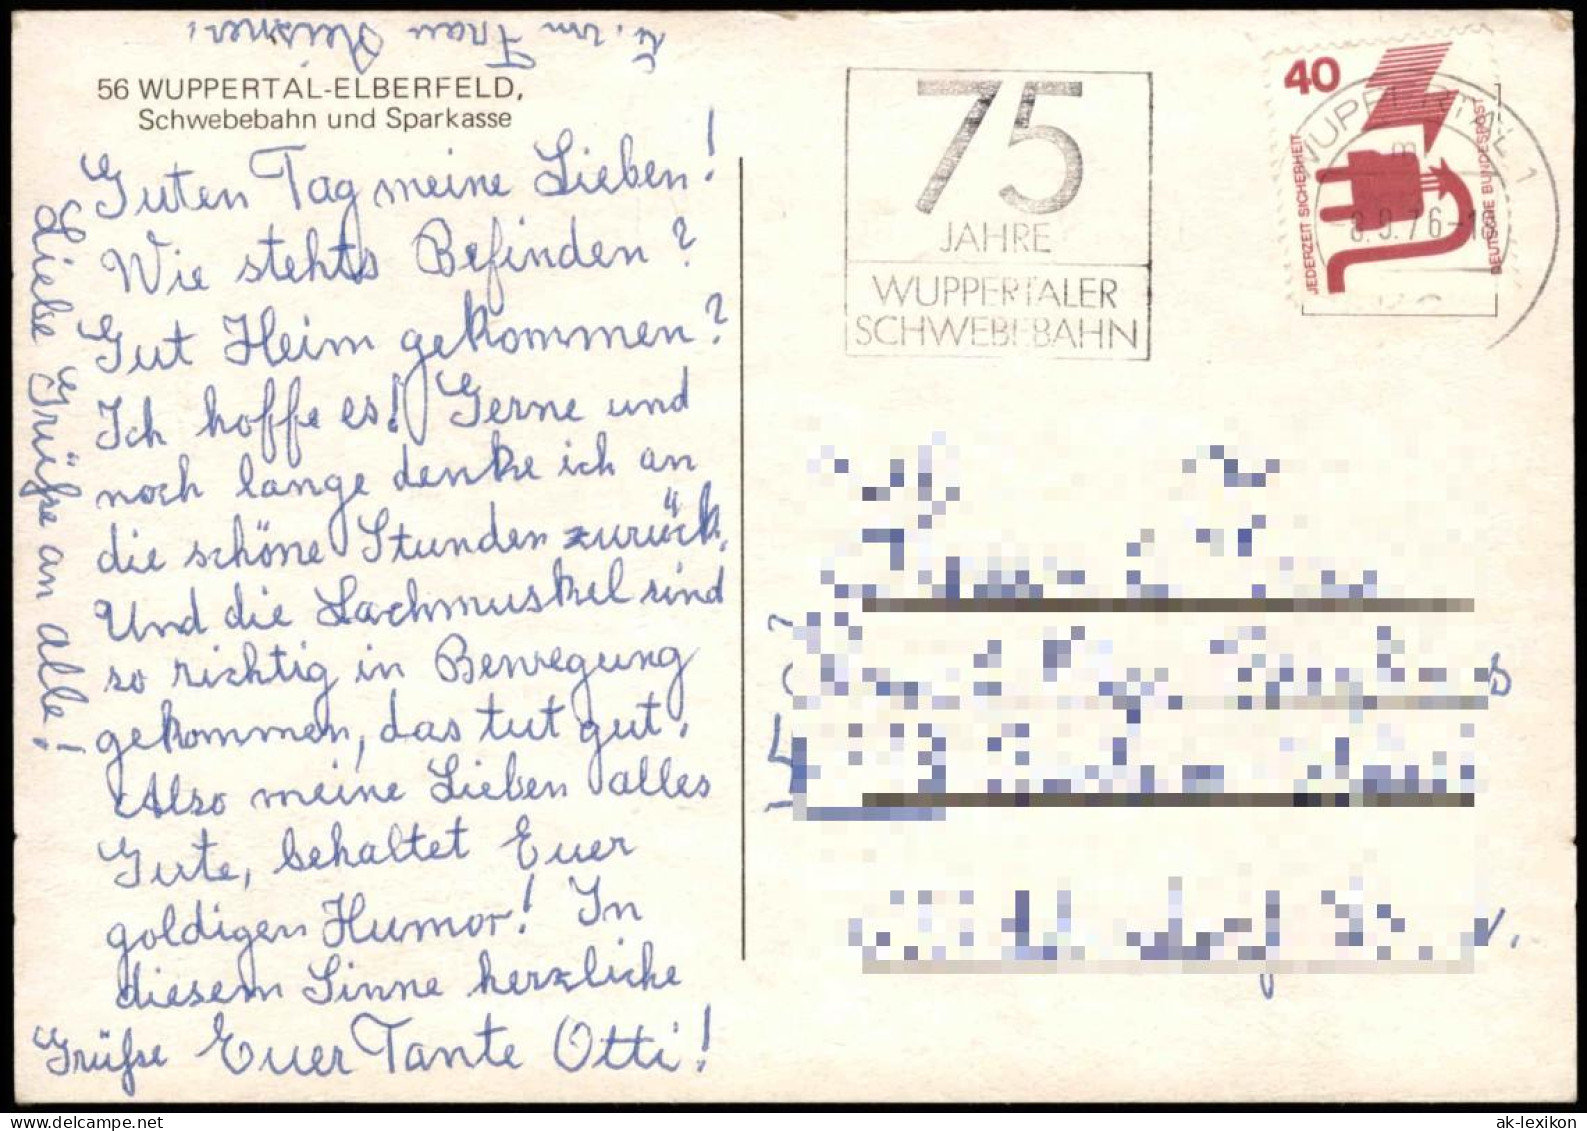 56 WUPPERTAL-ELBERFELD,
Schwebebahn und Sparkasse
Guten Tag meine Lieben!
Wie stehts Befinden?
Gut Heim gekommen?
Ich hoffe es! Gerne und
noch lange denke ich an
die schöne Stunden zurück.
Und die Lachmuskel sind
so richtig in Bewegung
gekommen, das tut gut.
Also meine Lieben alles
Gute, behaltet Euer
goldigen Humor! In
diesem Sinne herzliche
Grüße Euer Tante Otti!
Liebe Grüße an alle!
Frau
75
JAHRE
WUPPERTALER
SCHWEBEBAHN
40
JEDERZEIT SICHERHEIT
DEUTSCHE BUNDESPOST
WUPPERTAL 1
m
8.9.76-18
ak-lexikon